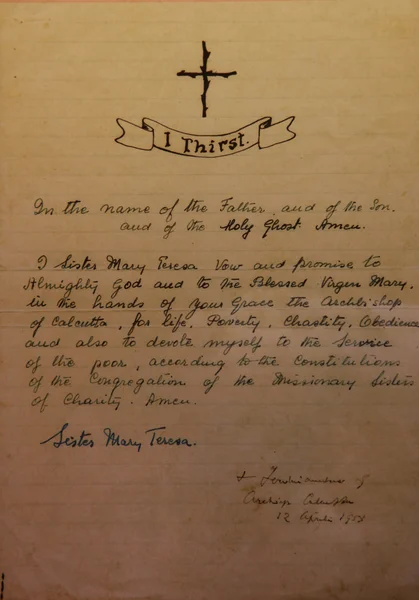 I Thirst.
In the name of the Father, and of the Son.
and of the Holy Ghost. Amen.
I Sister Mary Teresa Vow and promise to
Almighty God and to the Blessed Virgin Mary,
in the hands of your Grace the Archbishop
of Calcutta, for life, Poverty, Chastity, Obedience
and also to devote myself to the Service
of the poor, according to the Constitutions
of the Congregation of the Missionary Sisters
of Charity. Amen.
Sister Mary Teresa.
12 April